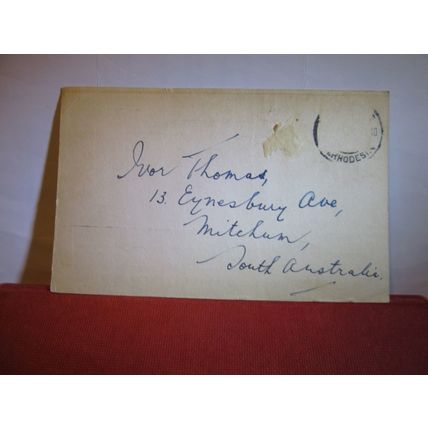 RHODESIA
Ivor Thomas,
13 Eynesbury Ave,
Mitchum,
South Australia.